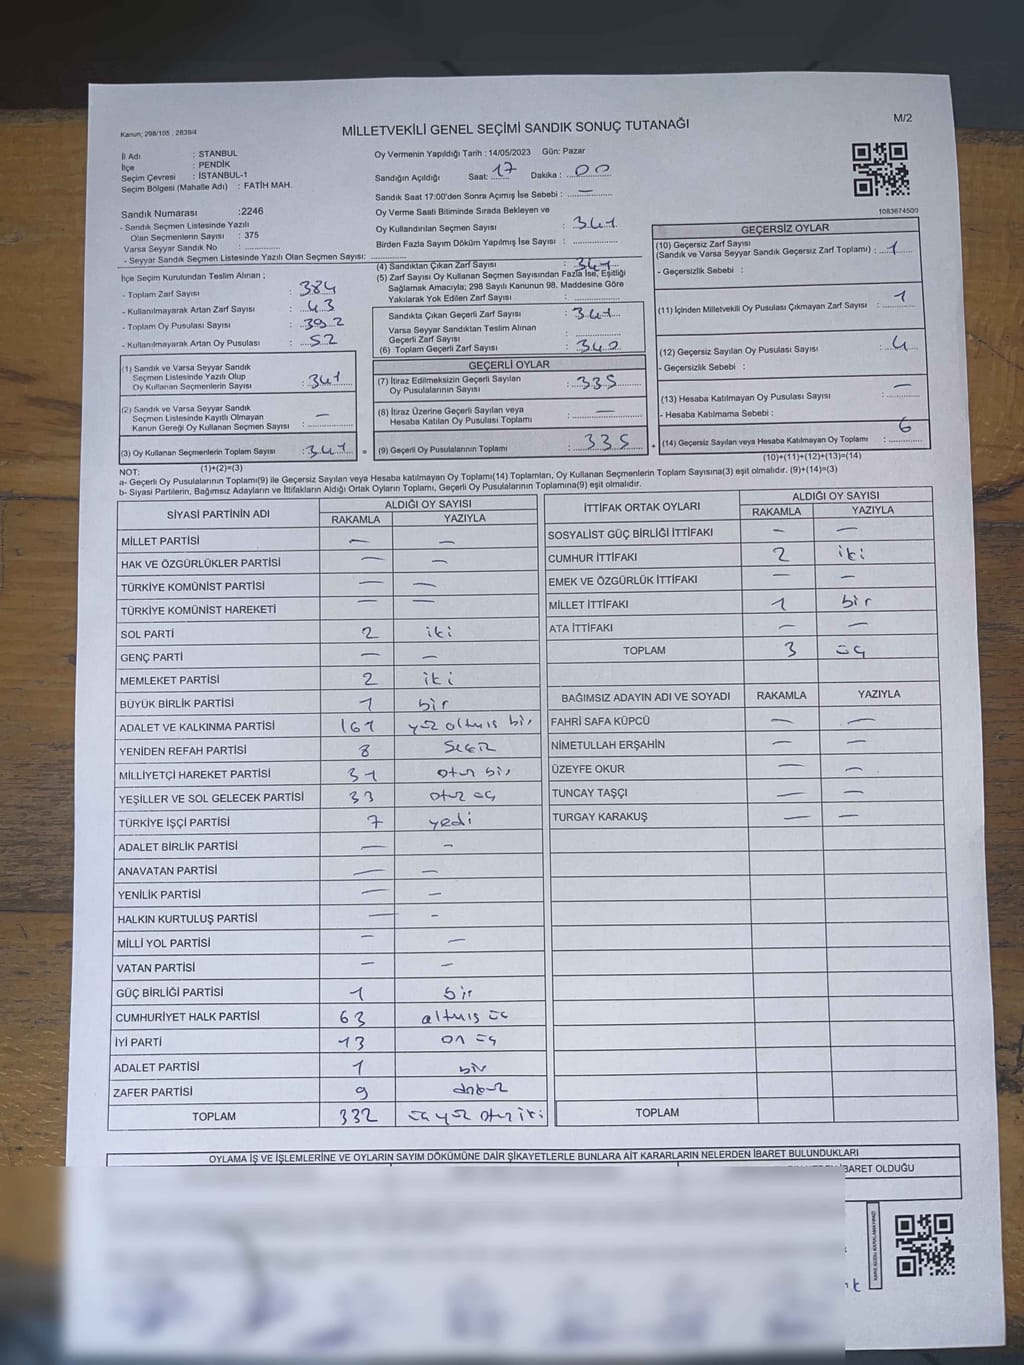 Kanun; 298/105 , 2839/4
MİLLETVEKİLİ GENEL SEÇİMİ SANDIK SONUÇ TUTANAĞI
M/2
İl Adı : STANBUL
İlçe : PENDİK
Seçim Çevresi : İSTANBUL-1
Seçim Bölgesi (Mahalle Adı) : FATİH MAH.
Oy Vermenin Yapıldığı Tarih : 14/05/2023 Gün: Pazar
Sandığın Açıldığı Saat: 17 Dakika : 00
Sandık Saat 17:00'den Sonra Açmış İse Sebebi : —
Oy Verme Saati Bitiminde Sırada Bekleyen ve
Oy Kullandırılan Seçmen Sayısı : 341
Birden Fazla Sayım Döküm Yapılmış İse Sayısı :
1083674500
Sandık Numarası :2246
- Sandık Seçmen Listesinde Yazılı
Olan Seçmenlerin Sayısı : 375
Varsa Seyyar Sandık No :
- Seyyar Sandık Seçmen Listesinde Yazılı Olan Seçmen Sayısı:
İlçe Seçim Kurulundan Teslim Alınan ;
- Toplam Zarf Sayısı : 384
- Kullanılmayarak Artan Zarf Sayısı : 43
- Toplam Oy Pusulası Sayısı : 392
- Kullanılmayarak Artan Oy Pusulası : 52
(1) Sandık ve Varsa Seyyar Sandık
Seçmen Listesinde Yazılı Olup
Oy Kullanan Seçmenlerin Sayısı : 341
(2) Sandık ve Varsa Seyyar Sandık
Seçmen Listesinde Kayıtlı Olmayan
Kanun Gereği Oy Kullanan Seçmen Sayısı : —
(3) Oy Kullanan Seçmenlerin Toplam Sayısı : 341
(1)+(2)=(3)
(4) Sandıktan Çıkan Zarf Sayısı : 341
(5) Zarf Sayısı Oy Kullanan Seçmen Sayısından Fazla İse, Eşitliği
Sağlamak Amacıyla; 298 Sayılı Kanunun 98. Maddesine Göre
Yakılarak Yok Edilen Zarf Sayısı :
Sandıkta Çıkan Geçerli Zarf Sayısı : 341
Varsa Seyyar Sandıktan Teslim Alınan
Geçerli Zarf Sayısı :
(6) Toplam Geçerli Zarf Sayısı : 340
GEÇERLİ OYLAR
(7) İtiraz Edilmeksizin Geçerli Sayılan
Oy Pusulalarının Sayısı : 335
(8) İtiraz Üzerine Geçerli Sayılan veya
Hesaba Katılan Oy Pusulası Toplamı : —
= (9) Geçerli Oy Pusulalarının Toplamı : 335 +
GEÇERSİZ OYLAR
(10) Geçersiz Zarf Sayısı
(Sandık ve Varsa Seyyar Sandık Geçersiz Zarf Toplamı) : 1
- Geçersizlik Sebebi :
(11) İçinden Milletvekili Oy Pusulası Çıkmayan Zarf Sayısı : 1
(12) Geçersiz Sayılan Oy Pusulası Sayısı : 4
- Geçersizlik Sebebi :
(13) Hesaba Katılmayan Oy Pusulası Sayısı : —
- Hesaba Katılmama Sebebi :
(14) Geçersiz Sayılan veya Hesaba Katılmayan Oy Toplamı : 6
(10)+(11)+(12)+(13)=(14)
NOT:
a- Geçerli Oy Pusulalarının Toplamı(9) ile Geçersiz Sayılan veya Hesaba katılmayan Oy Toplamı(14) Toplamları, Oy Kullanan Seçmenlerin Toplam Sayısına(3) eşit olmalıdır. (9)+(14)=(3)
b- Siyasi Partilerin, Bağımsız Adayların ve İttifakların Aldığı Ortak Oyların Toplamı, Geçerli Oy Pusulalarının Toplamına(9) eşit olmalıdır.
SİYASİ PARTİNİN ADI ALDIĞI OY SAYISI
RAKAMLA YAZIYLA
MİLLET PARTİSİ — —
HAK VE ÖZGÜRLÜKLER PARTİSİ — —
TÜRKİYE KOMÜNİST PARTİSİ — —
TÜRKİYE KOMÜNİST HAREKETİ — —
SOL PARTİ 2 iki
GENÇ PARTİ — —
MEMLEKET PARTİSİ 2 iki
BÜYÜK BİRLİK PARTİSİ 1 bir
ADALET VE KALKINMA PARTİSİ 161 yüz altmış bir
YENİDEN REFAH PARTİSİ 8 Sekiz
MİLLİYETÇİ HAREKET PARTİSİ 31 otuz bir
YEŞİLLER VE SOL GELECEK PARTİSİ 33 otuz üç
TÜRKİYE İŞÇİ PARTİSİ 7 yedi
ADALET BİRLİK PARTİSİ — —
ANAVATAN PARTİSİ — —
YENİLİK PARTİSİ — —
HALKIN KURTULUŞ PARTİSİ — —
MİLLİ YOL PARTİSİ — —
VATAN PARTİSİ — —
GÜÇ BİRLİĞİ PARTİSİ 1 bir
CUMHURİYET HALK PARTİSİ 63 altmış üç
İYİ PARTİ 13 on üç
ADALET PARTİSİ 1 bir
ZAFER PARTİSİ 9 dokuz
TOPLAM 332 üç yüz otuz iki
İTTİFAK ORTAK OYLARI ALDIĞI OY SAYISI
RAKAMLA YAZIYLA
SOSYALİST GÜÇ BİRLİĞİ İTTİFAKI — —
CUMHUR İTTİFAKI 2 iki
EMEK VE ÖZGÜRLÜK İTTİFAKI — —
MİLLET İTTİFAKI 1 bir
ATA İTTİFAKI — —
TOPLAM 3 üç
BAĞIMSIZ ADAYIN ADI VE SOYADI RAKAMLA YAZIYLA
FAHRİ SAFA KÜPCÜ — —
NİMETULLAH ERŞAHİN — —
ÜZEYFE OKUR — —
TUNCAY TAŞÇI — —
TURGAY KARAKUŞ — —
TOPLAM
OYLAMA İŞ VE İŞLEMLERİNE VE OYLARIN SAYIM DÖKÜMÜNE DAİR ŞİKAYETLERLE BUNLARA AİT KARARLARIN NELERDEN İBARET BULUNDUKLARI
İBARET OLDUĞU